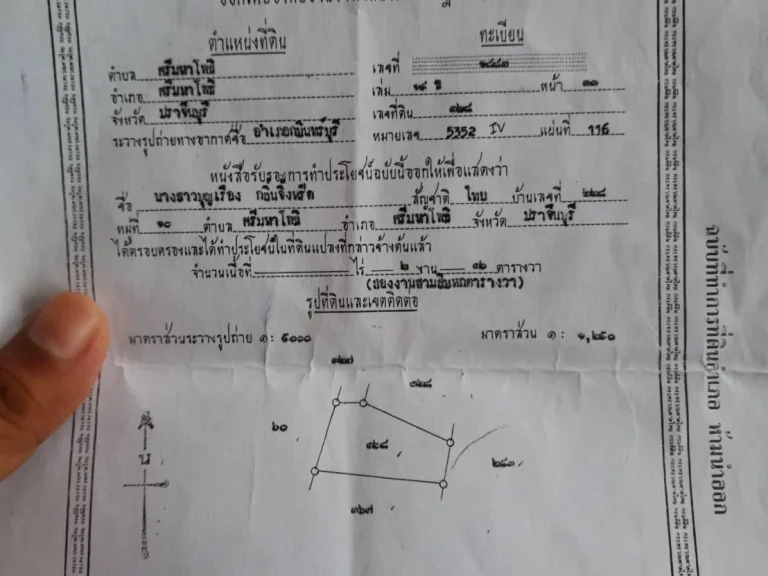 ตำแหน่งที่ดิน
ทะเบียน
ตำบล ศรีมหาโพธิ
อำเภอ ศรีมหาโพธิ
จังหวัด ปราจีนบุรี
ระวางรูปถ่ายทางอากาศชื่อ อำเภอกบินทร์บุรี
เลขที่
เล่ม ๒๙ ข หน้า ๓๓
เลขที่ดิน ๓๖๘
หมายเลข 5352 IV แผ่นที่ 116
หนังสือรับรองการทำประโยชน์ฉบับนี้ออกให้เพื่อแสดงว่า
ชื่อ นางสาวบุญเรือง สัญชาติ ไทย บ้านเลขที่
หมู่ที่ ๑๐ ตำบล ศรีมหาโพธิ อำเภอ ศรีมหาโพธิ จังหวัด ปราจีนบุรี
ได้ครอบครองและได้ทำประโยชน์ในที่ดินแปลงที่กล่าวข้างต้นแล้ว
จำนวนเนื้อที่ ไร่ ๒ งาน ๓๖ ตารางวา
(สองงานสามสิบหกตารางวา)
รูปที่ดินและเขตติดต่อ
มาตราส่วนระวางรูปถ่าย ๑: ๕๐๐๐
มาตราส่วน ๑ : ๑,๒๕๐
๓๒๗
๖๐
๓๖๘
๒๘๓
๓๖๗
น
ฉบับที่ทำการที่ดินอำเภอ ห้ามนำออก